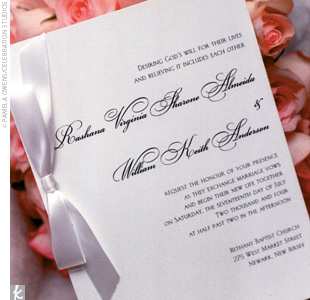 © PAMELA OWENS/CELEBRATION STUDIOS
DESIRING GOD'S WILL FOR THEIR LIVES
AND BELIEVING IT INCLUDES EACH OTHER
Rashana Virginia Sharone Almeida
&
William Keith Anderson
REQUEST THE HONOUR OF YOUR PRESENCE
AS THEY EXCHANGE MARRIAGE VOWS
AND BEGIN THEIR NEW LIFE TOGETHER
ON SATURDAY, THE SEVENTEENTH DAY OF JULY
TWO THOUSAND AND FOUR
AT HALF PAST TWO IN THE AFTERNOON
BETHANY BAPTIST CHURCH
275 WEST MARKET STREET
NEWARK, NEW JERSEY